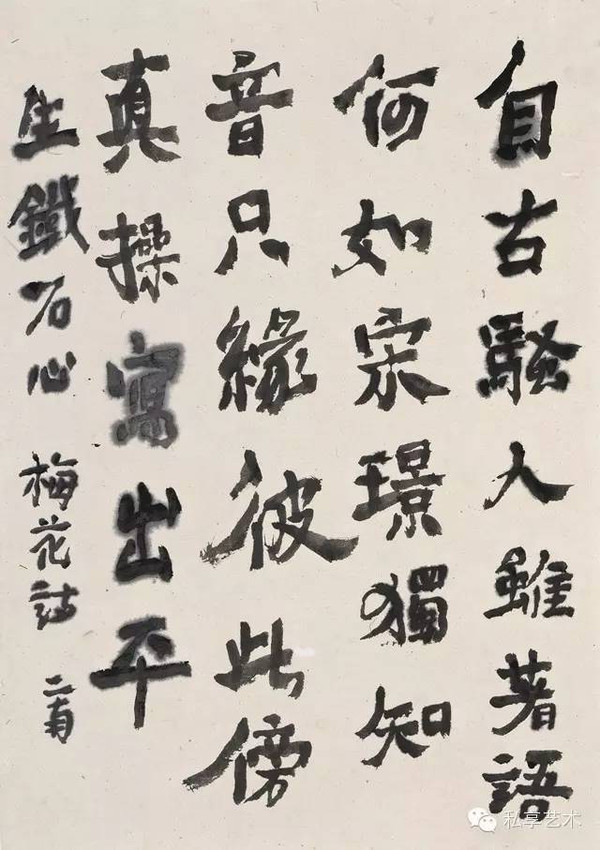 自古騷人雖著語
何如宋璟獨知
音只緣彼此傍
真操寫出平
生鐵石心 梅花詩 二南
私享艺术